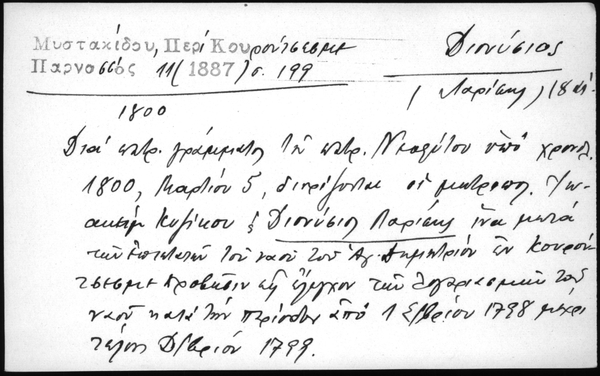 Μυστακίδου, Περί Κουρούτσεσμε
Παρνασσός 11 (1887) σ. 199
Διονύσιος
(Λαρίσης) 18
1800
Διά πατρ. γράμματος τοῦ πατρ. Νεοφύτου ὑπό χρονολ.
1800, Μαρτίου 5, διορίζονται οἱ μητροπ. Ἰω-
ακείμ Κυζίκου ἐ Διονύσιος Λαρίσης ἵνα μετά
τῶν ἐπιτρόπων τοῦ ναοῦ τοῦ Ἁγ. Δημητρίου ἐν Κουρού-
τσεσμε προβῶσιν εἰς ἔλεγχον τῶν λογαριασμῶν τοῦ
ναοῦ κατά τήν περίοδον ἀπό 1 Σ/βρίου 1798 μέχρι
τέλους Δ/βρίου 1799.